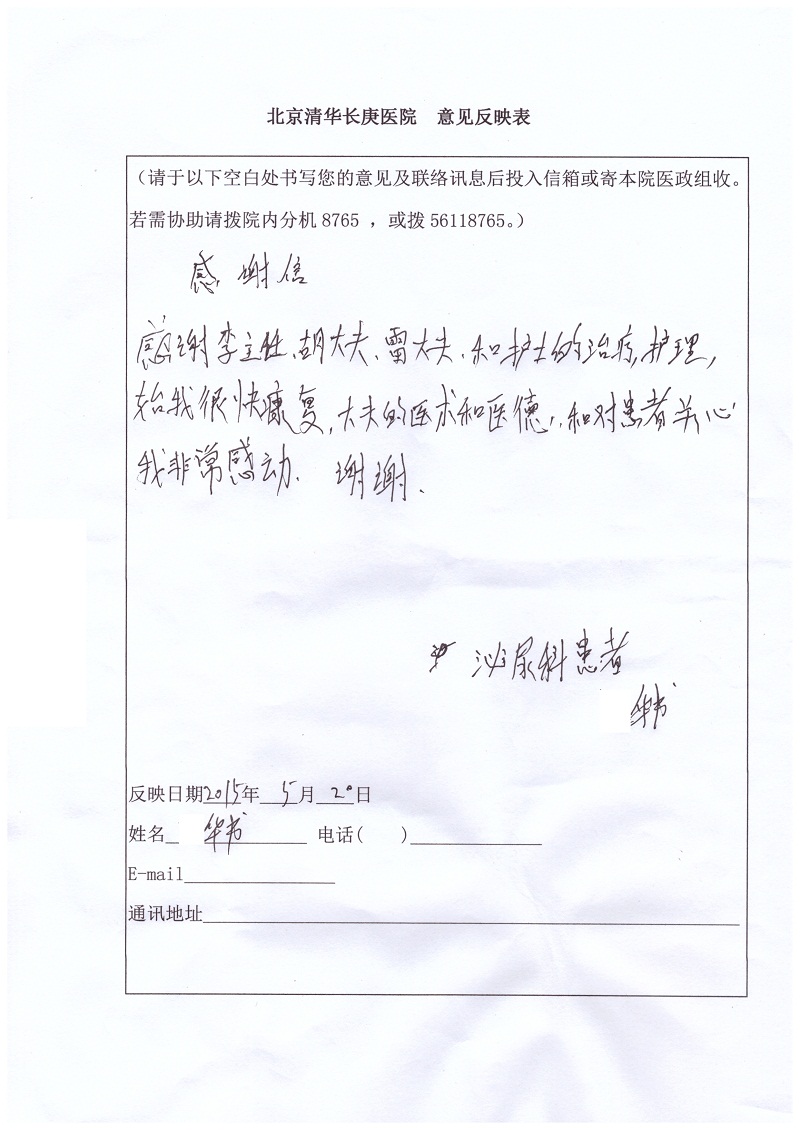 北京清华长庚医院 意见反映表
（请于以下空白处书写您的意见及联络讯息后投入信箱或寄本院医政组收。
若需协助请拨院内分机8765 ，或拨56118765。）
感谢信
感谢李主任、胡大夫、雷大夫、和护士的治疗,护理,
始我很快康复,大夫的医术和医德,和对患者关心
我非常感动. 谢谢.
泌尿科患者
华书
反映日期2015年 5月 20日
姓名 华书 电话( )
E-mail
通讯地址